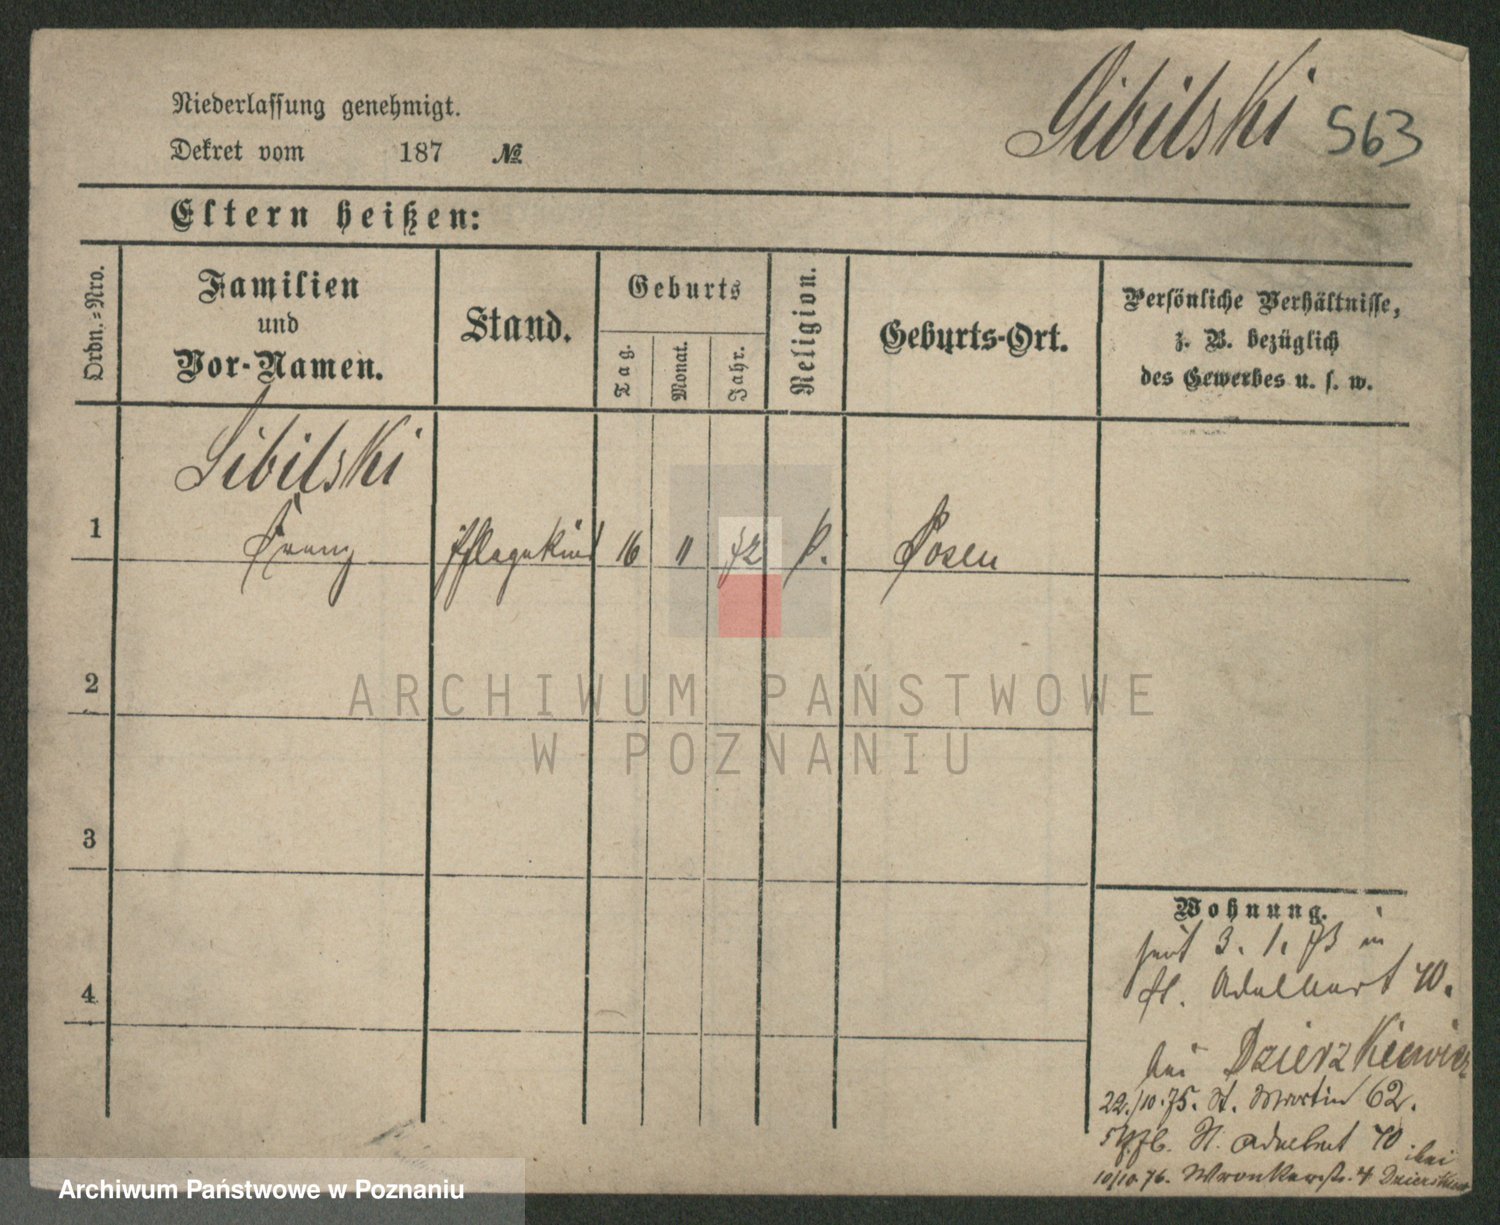 Sibilski 563
Niederlassung genehmigt.
Dekret vom 187 №
Eltern heißen:
Ordn.=Nro.
Familien
und
Vor-Namen.
Stand.
Geburts
Tag.
Monat.
Jahr.
Religion.
Geburts-Ort.
Persönliche Verhältnisse,
z. B. bezüglich
des Gewerbes u. s. w.
Sibilski
1 Franz Pflegekind 16 11 72 k. Posen
2
3
4
Wohnung.
seit 3. 1. 73 in
St. Adalbert 40.
bei Dzierzkiewicz
22./10.75. St. Martin 62.
St. Adalbert 40
10/10 76. Wronkerstr. 4 bei
ARCHIWUM PAŃSTWOWE
W POZNANIU
Archiwum Państwowe w Poznaniu